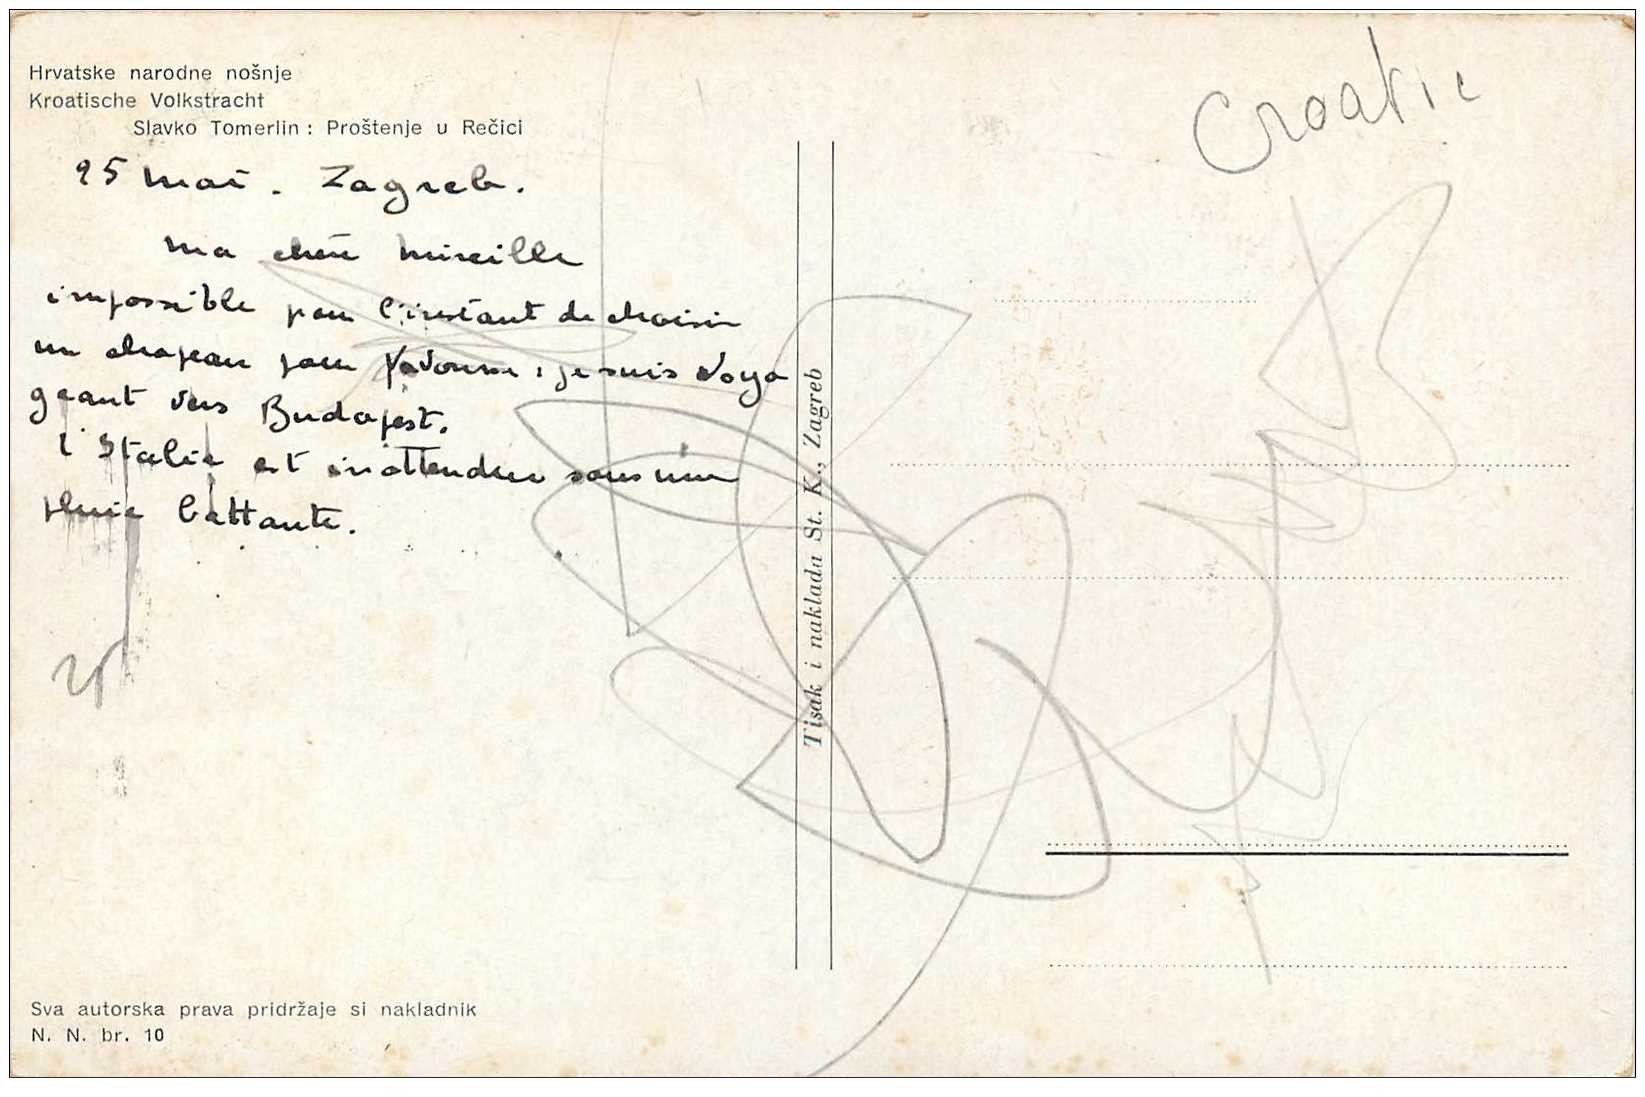 Hrvatske narodne nošnje
Kroatische Volkstracht
Slavko Tomerlin : Proštenje u Rečici
25 mai . Zagreb .
ma chère mireille
impossible pour l'instant de choisir
un chapeau pour : je suis voya
geant vers Budapest.
l'Italie est inattendue sous une
pluie battante.
Croatie
Tisak i naklada St. K., Zagreb
Sva autorska prava pridržaje si nakladnik
N. N. br. 10